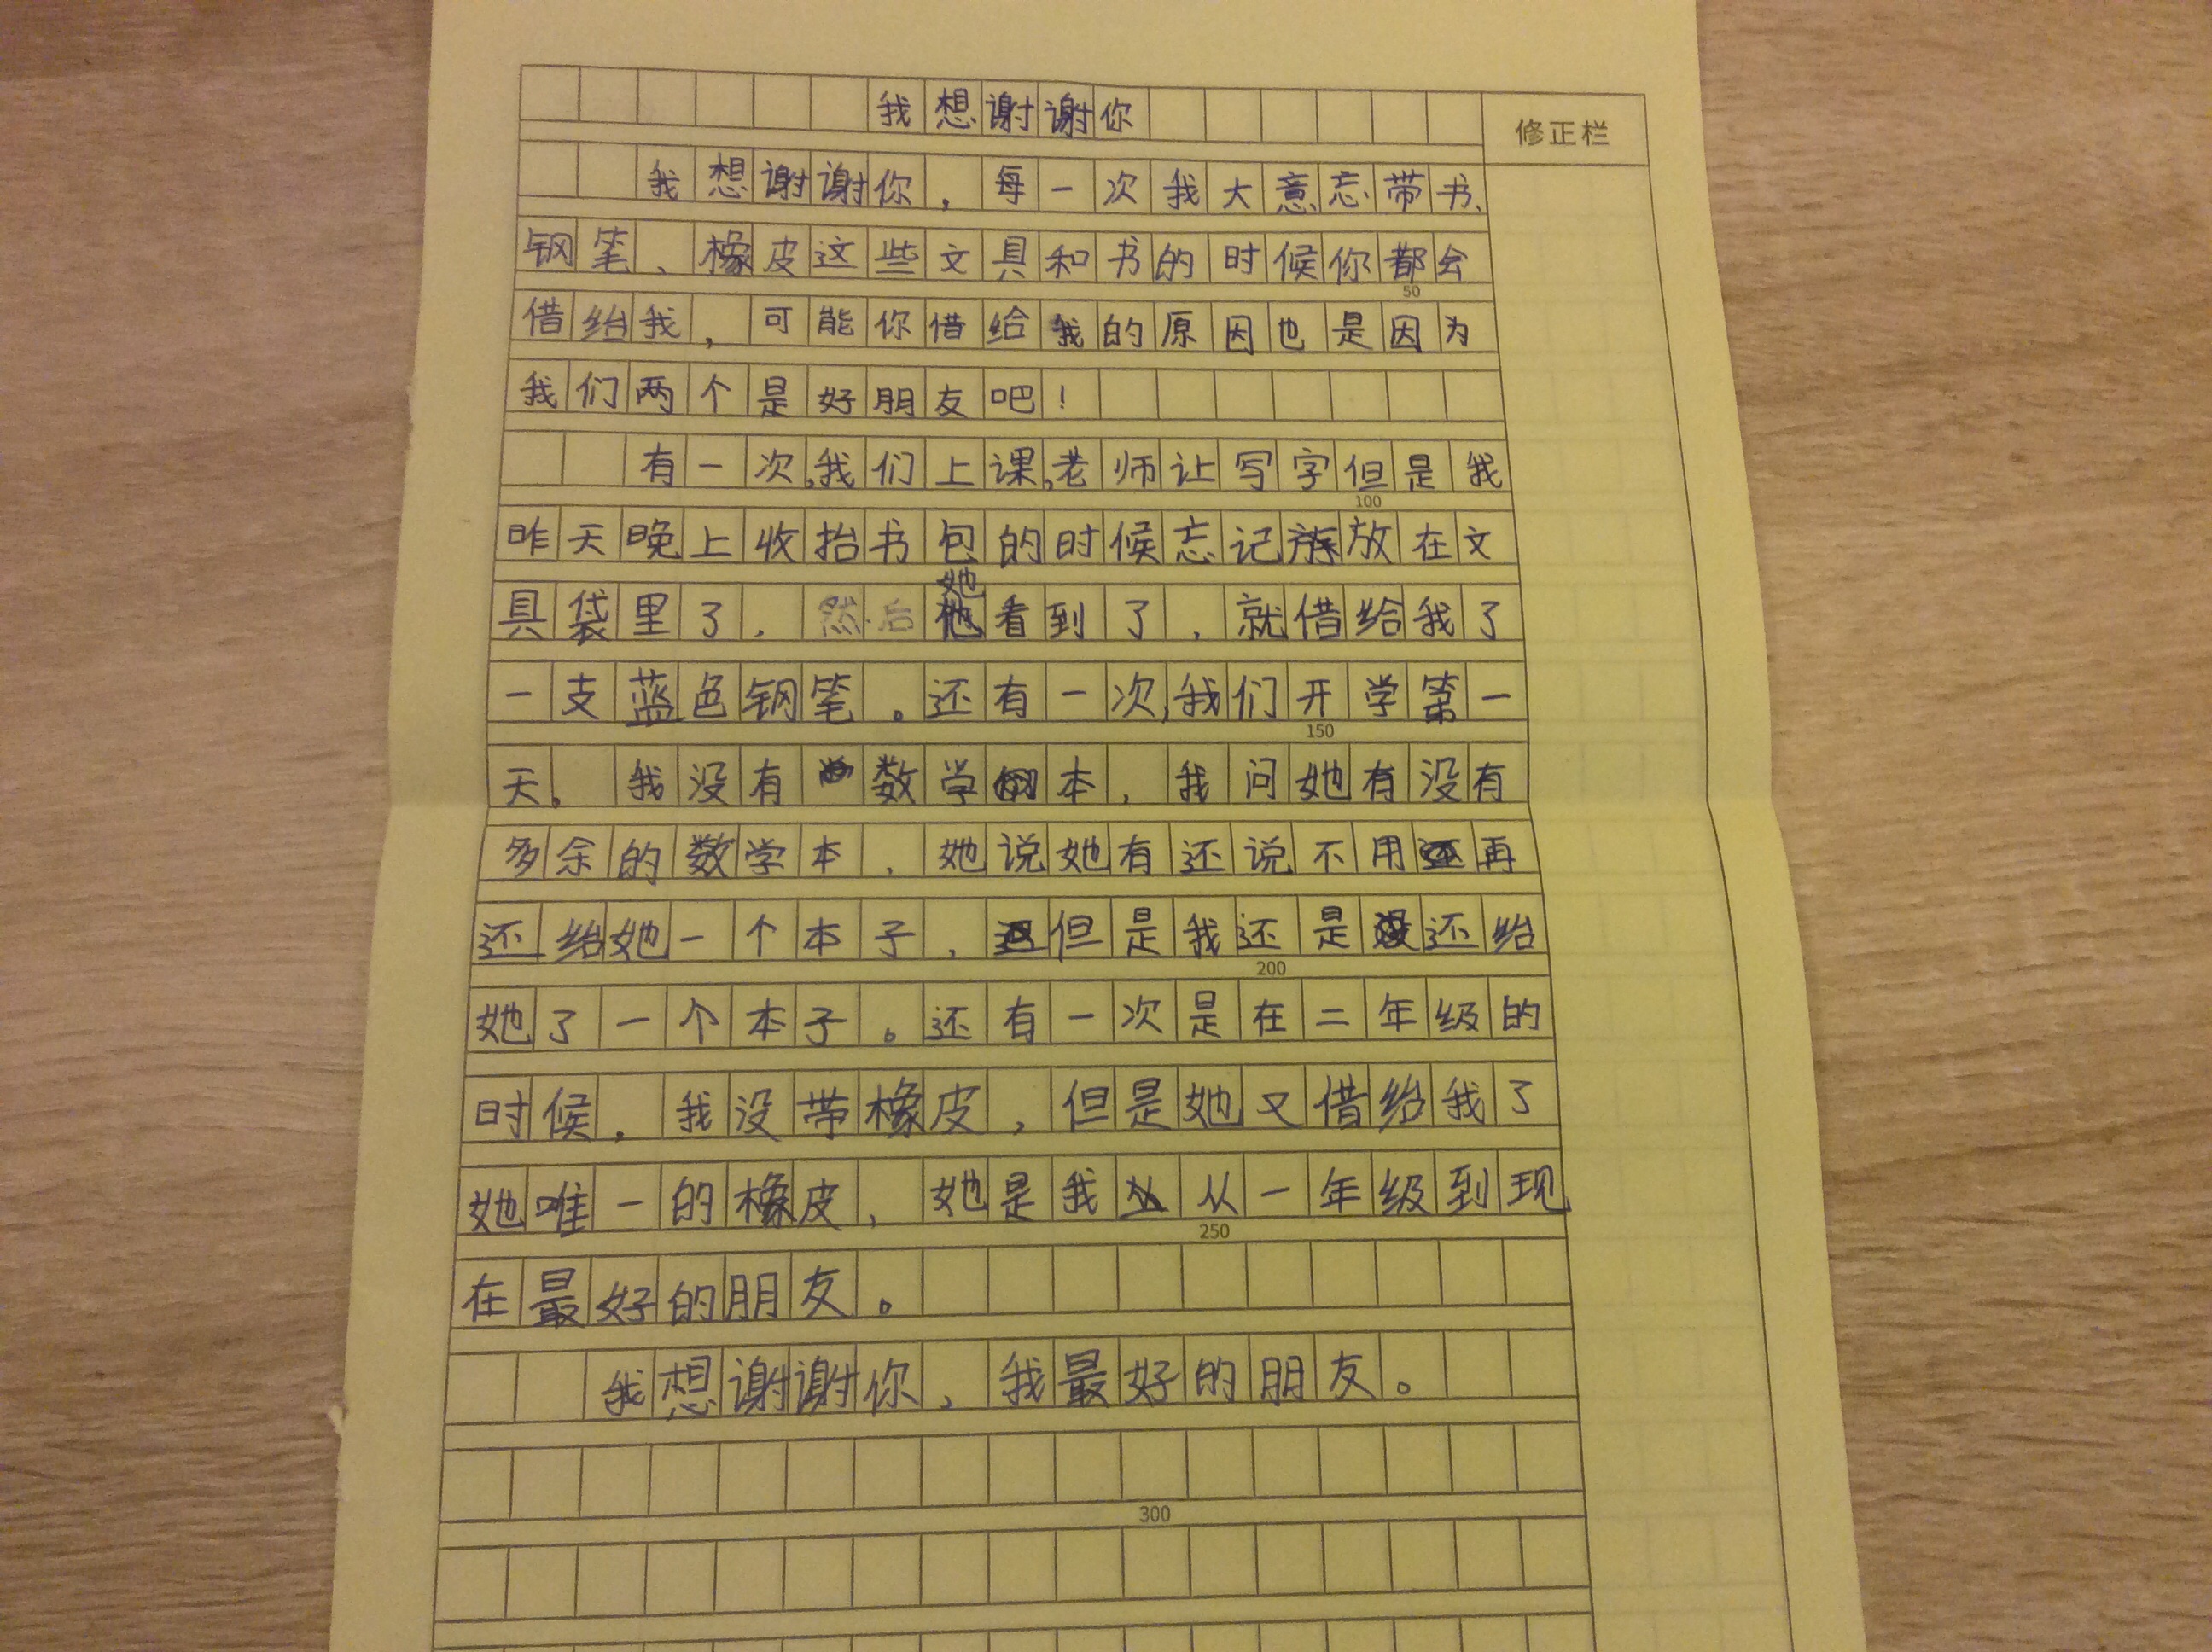 我想谢谢你
修正栏
我想谢谢你，每一次我大意忘带书、
钢笔、橡皮这些文具和书的时候你都会
50
借给我，可能你借给我的原因也是因为
我们两个是好朋友吧！
有一次,我们上课,老师让写字但是我
100
昨天晚上收拾书包的时候忘记放在文
具袋里了，然后她看到了，就借给我了
一支蓝色钢笔。还有一次,我们开学第一
150
天。我没有数学本，我问她有没有
多余的数学本，她说她有还说不用再
还给她一个本子，但是我还是还给
200
她了一个本子。还有一次是在二年级的
时候，我没带橡皮，但是她又借给我了
她唯一的橡皮，她是我从一年级到现
250
在最好的朋友。
我想谢谢你，我最好的朋友。
300